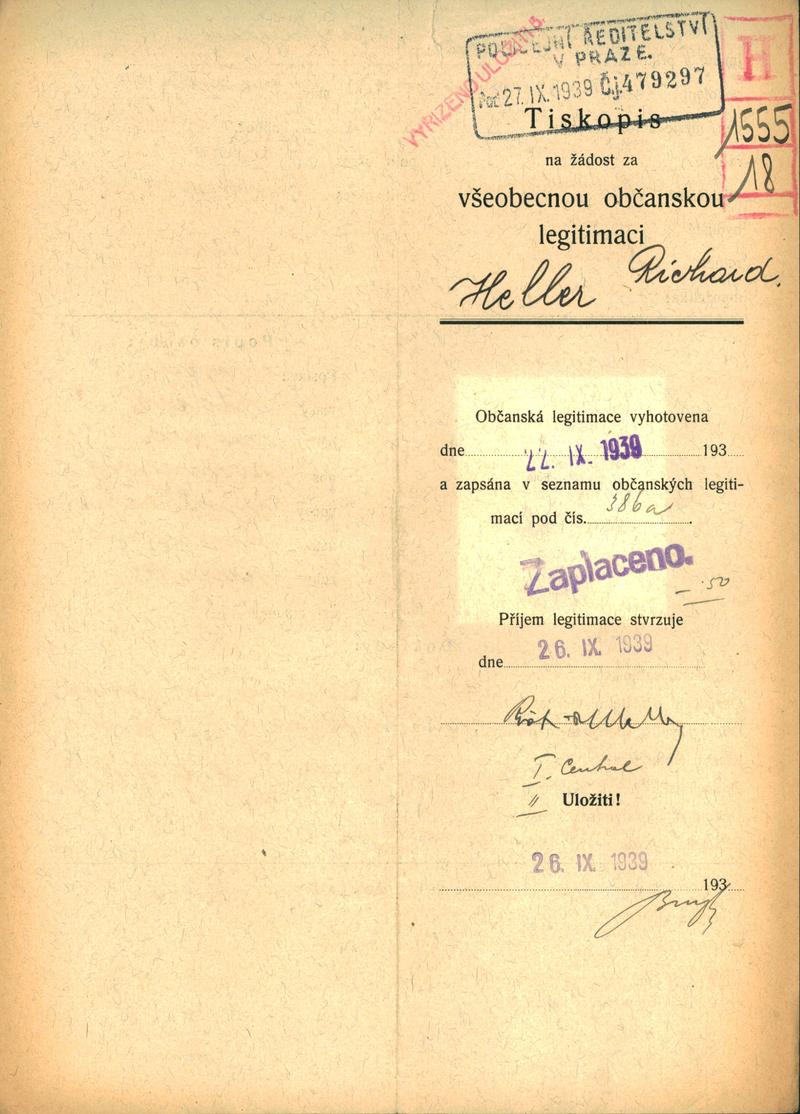 POLICEJNÍ ŘEDITELSTVÍ
V PRAZE.
27. IX. 1939 Čj. 479297
VYŘIZENO ULOŽITI
H
1555
18
Tiskopis
na žádost za
všeobecnou občanskou
legitimaci
Heller Richard.
Občanská legitimace vyhotovena
dne 22. IX. 1939 193
a zapsána v seznamu občanských legiti-
mací pod čís. 386a.
Zaplaceno.
— .50
Příjem legitimace stvrzuje
26. IX. 1939
dne
I. Central
II Uložiti!
26. IX. 1939
193